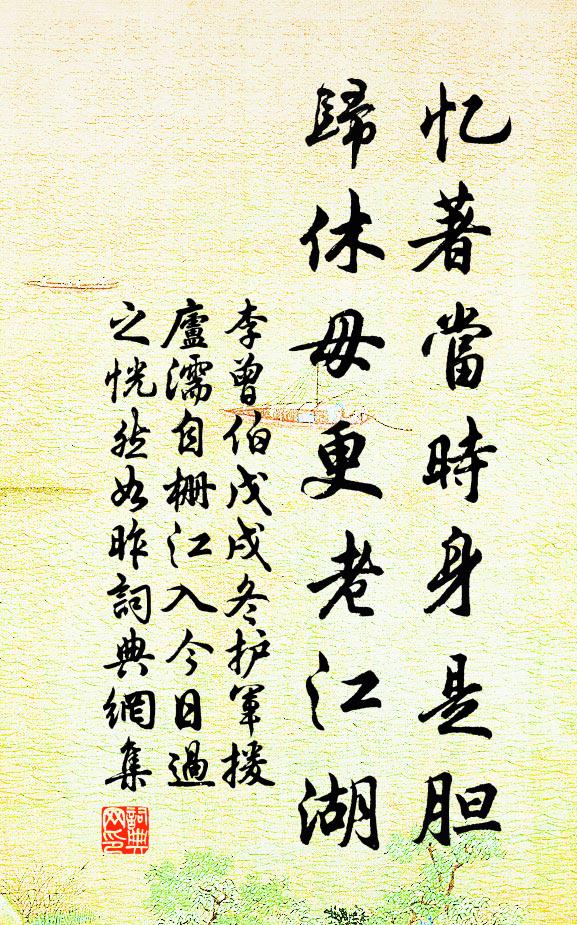 忆著當時身是胆
歸休毋更老江湖
李曾伯戊戌冬护軍援
廬濡自柵江入今日過
之恍然如昨詞典網集
詞典網印